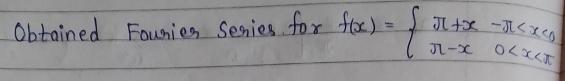 Obtained Fourier Series for f(x) = { π+x -π<x<0
π-x 0<x<π